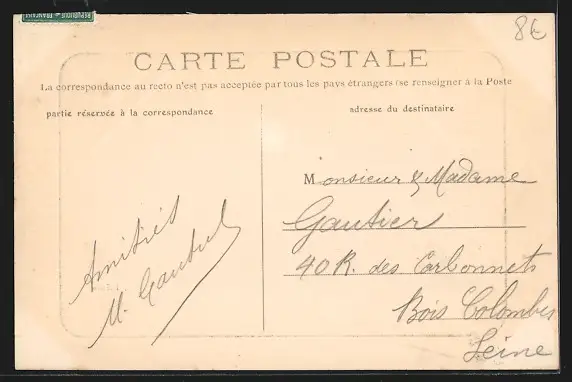 REPUBLIQUE FRANÇAISE
8€
CARTE POSTALE
La correspondance au recto n'est pas acceptée par tous les pays étrangers (se renseigner à la Poste
partie réservée à la correspondance
adresse du destinataire
Monsieur & Madame
Gautier
40 R. des Carbonnets
Bois Colombes
Seine
Amitiés
M.